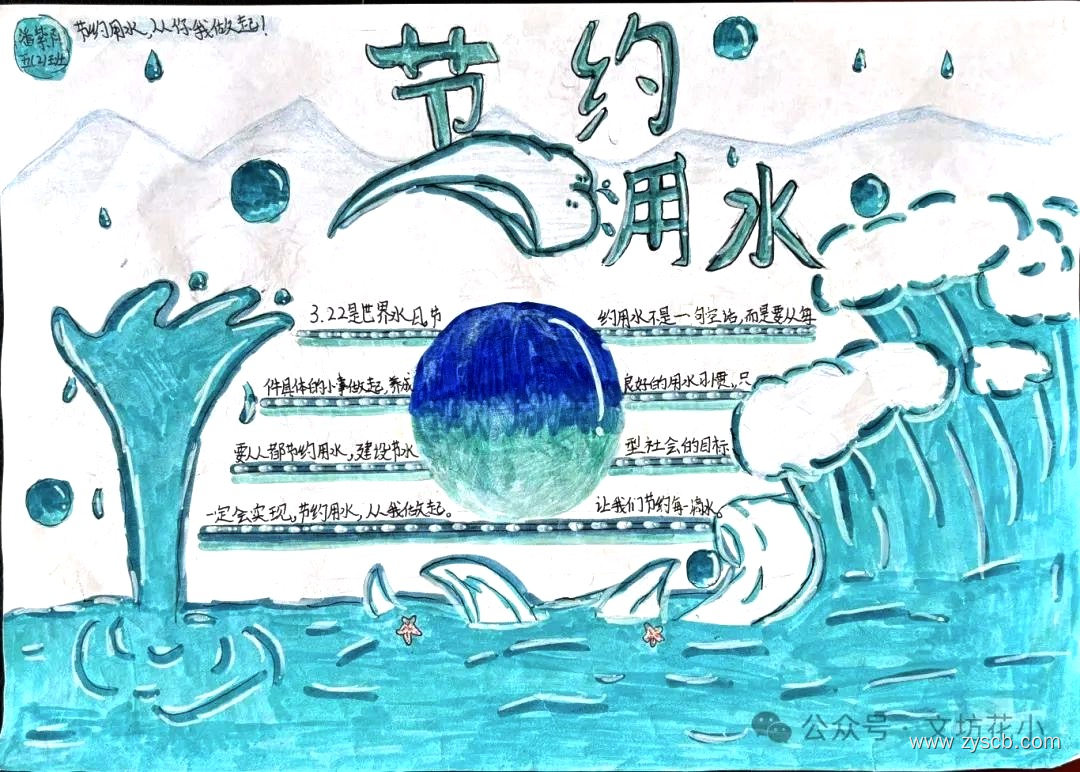 五(2)班
节约用水,从你我做起!
节约
用水
3.22是世界水日,节约用水不是一句空话,而是要从每
件具体的小事做起,养成良好的用水习惯,只
要人人都节约用水,建设节水型社会的目标
一定会实现。节约用水,从我做起。让我们节约每一滴水。
公众号·文坊花小
www.zyscb.com